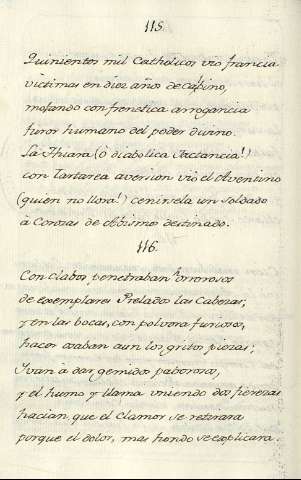 115.
Quinientos mil Catholicos vio francia
victimas en diez años de Calbino,
mofando con frenetica arrogancia
furor humano del poder divino.
La Thiara (ò diabolica Jactancia!)
con Tartarea aversion viò el Aventino
(quien no llora!) ceñirsela un soldado
à Corozas de Abismo destinado.
116.
Con clabos penetraban horrorosos
de exemplares Prelados las Cabezas;
y en las bocas, con polvora furiosos,
hacer osaban aun los gritos piezas;
Ivan à dar gemidos paborosos,
y el humo y llama uniendo dos fierezas
hacian que el clamor se retirara
porque el dolor, mas hondo se explicara.